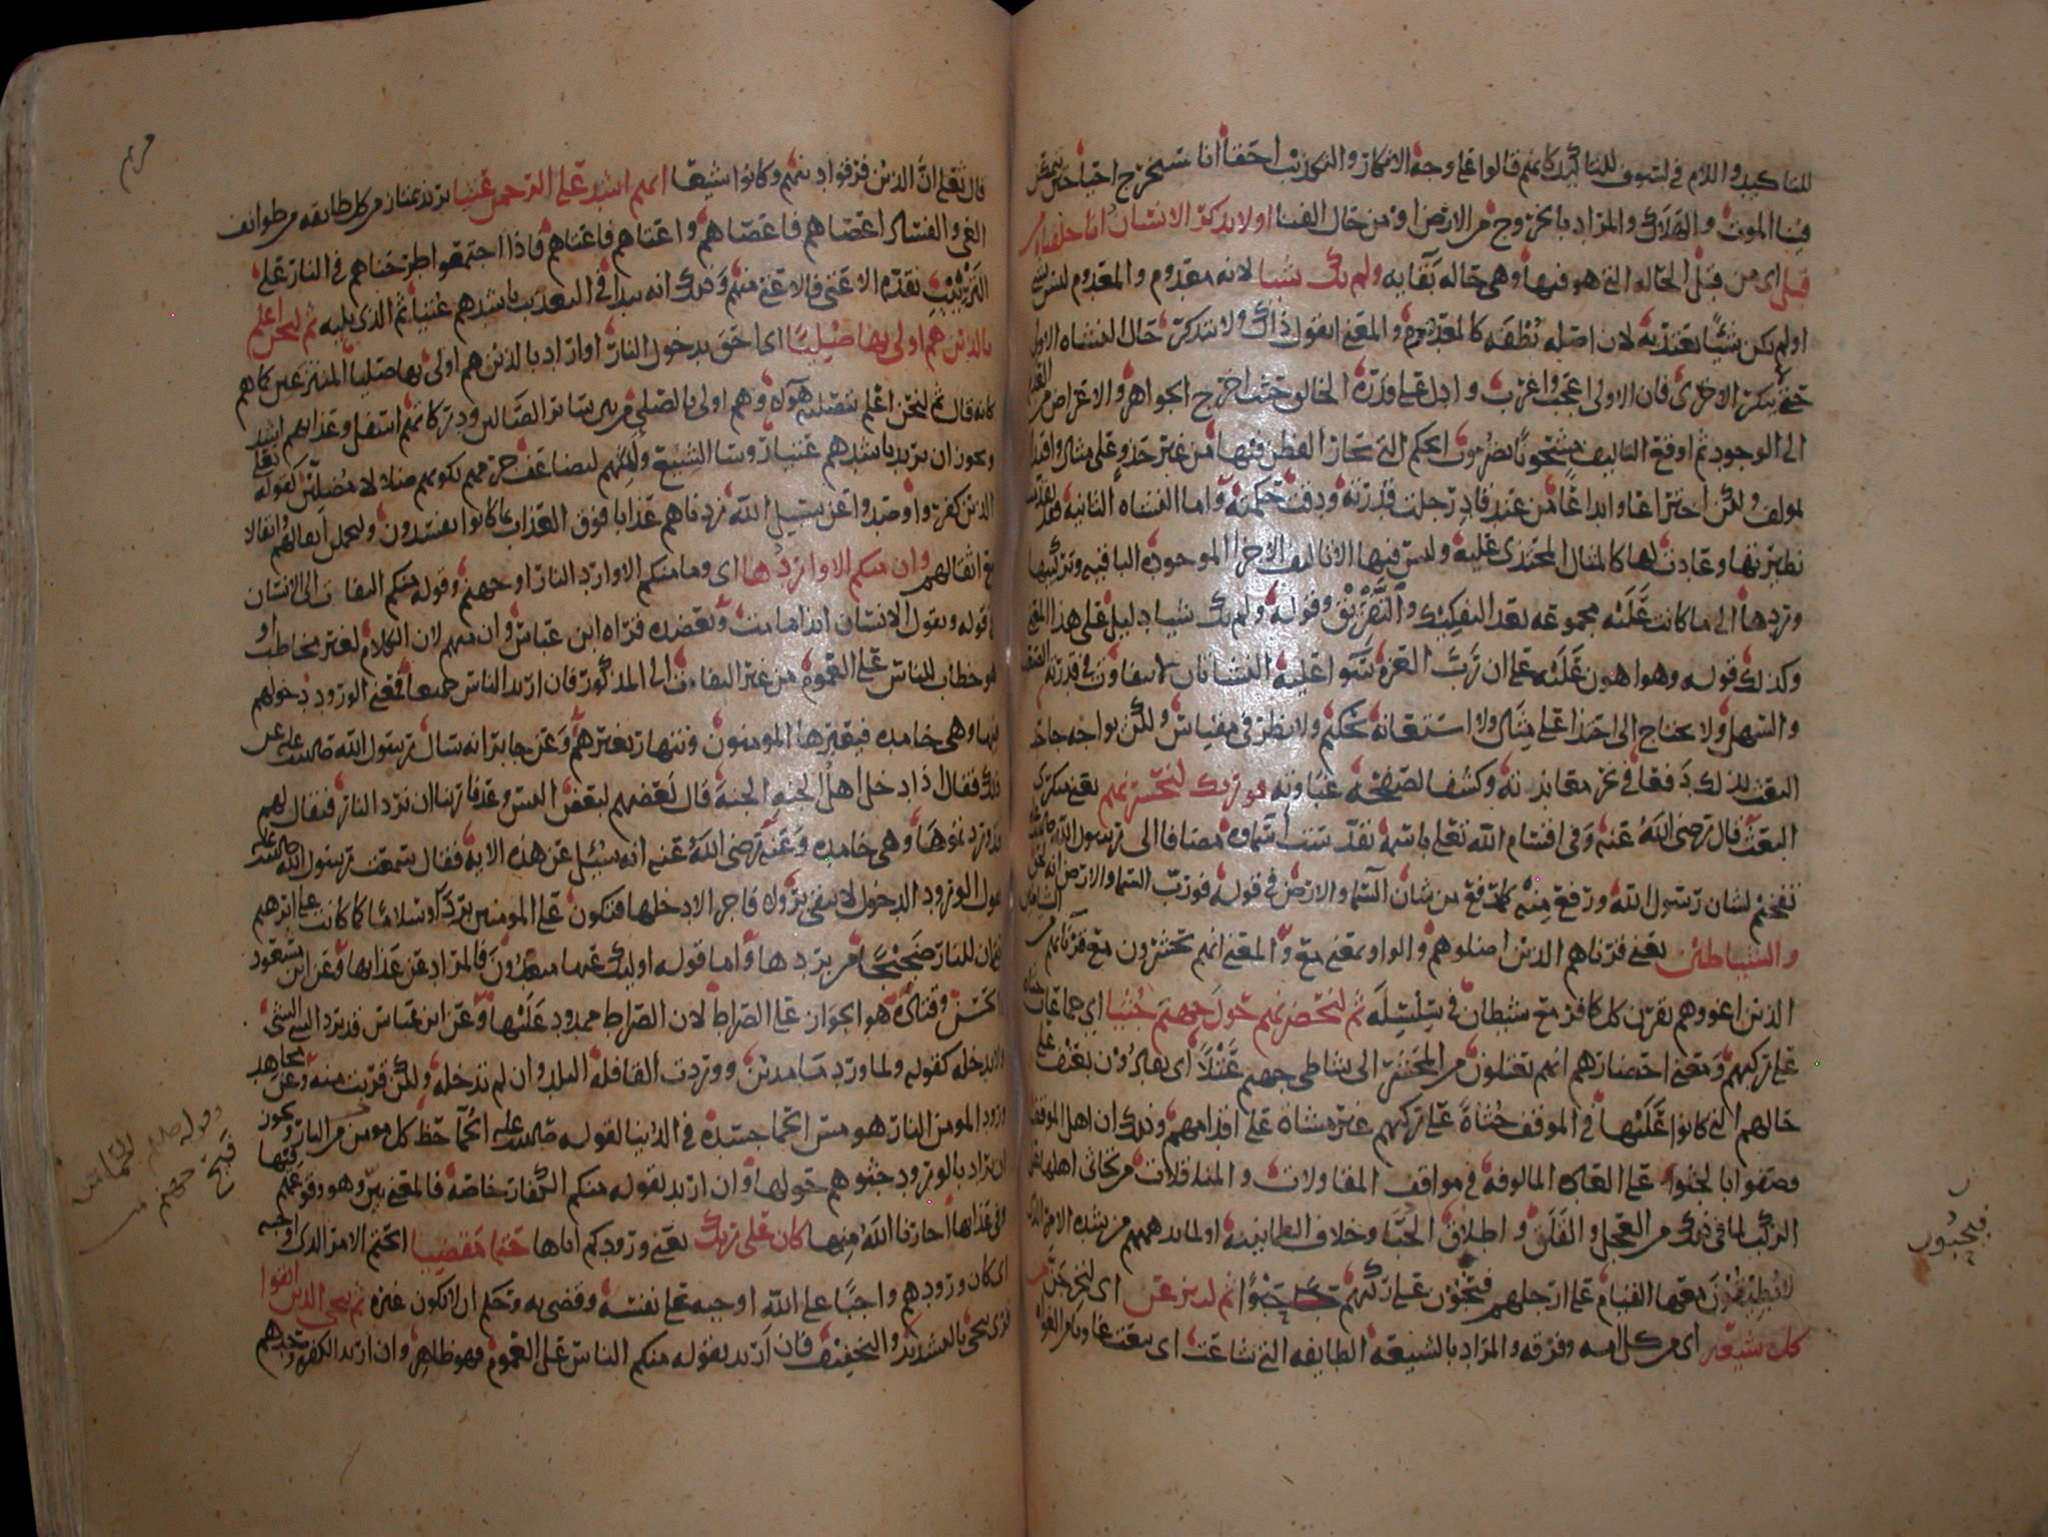 للتاكيد واللام في لسوف للتاكيد كانهم قالوا على وجه الانكار والتكذيب احقا انا سنخرج احيا حين تمكن
فينا الموت والهلاك والمراد بالخروج من الارض او من حال الفنا اولا يذكر الانسان انا خلقناه من
قبل اى من قبل الحاله التي هو فيها وهى حالة بقايه ولم يك شيا لانه معدوم والمعدوم ليس بشي
او لم يكن شيئا يعتد به لان اصله نطفه كالمعدوم والمعنى ايقول ذاك ولا يتذكر حال النشاه الاولى
حتى ينكر الاخرى فان الاولى اعجب واغرب وادل على قدرة الخالق حيث اخرج الجواهر والاعراض من العدم
الى الوجود ثم اوقع التاليف مشحونا بضروب الحكم التي تحار الفطن فيها من غير حذو على مثال واقتدا
بمولف ولكن اختراعا وابداعا من عند قادر جلت قدرته ودقت حكمته واما النشاه الثانيه فقد تقدمت
نظيرتها وعادت لها كالمثال المحتذى عليه وليس فيها الا تاليف الاجزا الموجوده الباقيه وتركيبها
وردها الى ما كانت عليه مجموعه بعد التفكيك والتفريق وقوله ولم يك شيا دليل على هذا المعنى
وكذلك قوله وهو اهون عليه على ان رب العزه سوا عليه النشاتان لا يتفاوت في قدرته الصعب
والسهل ولا يحتاج الى احتذا على مثال ولا استعانه بحكيم ولا نظر في مقياس ولكن يواجه جاحد
البعث بذلك دفعا في نحر معاندته وكشفا لصفحة عناده فو ربك لنحشرنهم يعنى منكرى
البعث قال رضى الله عنه وفى اقسام الله تعلى باسمه تقدست اسماوه مضافا الى رسول الله صلى الله عليه
تفخيم لشان رسول الله ورفع منه كما رفع من شان السما والارض في قوله فورب السما والارض انه لحق
والشياطين يعنى قرناهم الذين اضلوهم والواو بمعنى مع والمعنى انهم يحشرون مع قرنايهم من الشياطين
الذين اغووهم يقرن كل كافر مع شيطان في سلسله ثم لنحضرنهم حول جهنم جثيا اى جماعات جثاة
على ركبهم ومعنى احضارهم انهم يعتلون من المحشر الى شاطى جهنم عتلا اى يقادون بعنف على
حالهم التي كانوا عليها في الموقف جثاة على ركبهم غير مشاة على اقدامهم وذلك ان اهل الموقف
وصفوا بالجثو على العاده المالوفه في مواقف المقاولات والمناقلات من تجاثى اهلها على
الركب لما في ذلك من العجل والقلق واطلاق الحبا وخلاف الطمانينه او لما يدهمهم من شده الامر التي
لا يطيقون معها القيام على ارجلهم فيحبون على ركبهم حبوا ثم لننزعن اى لنخرجن من
كل شيعه اى من كل امه وفرقه والمراد بالشيعه الطايفه التي شاعت اى تبعت غاويا من الغواه
فيحبون
مريم
قال تعلى ان الذين فرقوا دينهم وكانوا شيعا ايهم اشد على الرحمن عتيا يريد نمتاز من كل طايفه من طوايف
الغى والفساد اعصاهم فاعصاهم واعتاهم فاعتاهم فاذا اجتمعوا طرحناهم في النار على
الترتيب نقدم الاعتى فالاعتى منهم وذلك انه يبدا في التعذيب باشدهم عتيا ثم الذى يليه ثم لنحن اعلم
بالذين هم اولى بها صليا اى احق بدخول النار او اراد بالذين هم اولى بها صليا المنتزعين كما هم
كانه قال ثم لنحن اعلم بتصليه هولا وهم اولى بالصلى من بين ساير الصالين ودركاتهم اسفل وعذابهم اشد
ويجوز ان يريد باشدهم عتيا روسا الشيع وايمتهم لتضاعف جرمهم بكونهم ضلالا مضلين كقوله تعلى
الذين كفروا وصدوا عن سبيل الله زدناهم عذابا فوق العذاب بما كانوا يفسدون وليحملن اثقالهم واثقالا
مع اثقالهم وان منكم الا واردها اى وما منكم الا وارد النار او جهنم وقوله منكم التفات الى الانسان
في قوله ويقول الانسان ايذا ما مت ويعضده قراه ابن عباس وان منهم لان الكلام لغير مخاطب او
هو خطاب للناس على العموم من غير التفات الى المذكور فان اريد الناس جميعا فمعنى الورود دخولهم
فيها وهى خامده فيعبرها المومنون وتنهار بغيرهم وعن جابر انه سال رسول الله صلى الله عليه عن
ذلك فقال اذا دخل اهل الجنه الجنه قال بعضهم لبعض اليس وعدنا ربنا ان نرد النار فيقال لهم
قد وردتموها وهى خامده وعنه رضى الله عنه انه سيل عن هذه الايه فقال سمعت رسول الله صلى الله عليه
يقول الورود الدخول لا يبقى بر ولا فاجر الا دخلها فتكون على المومنين بردا وسلاما كما كانت على ابرهيم
حتى ان للنار ضجيجا من بردها واما قوله اوليك عنها مبعدون فالمراد عن عذابها وعن ابن مسعود
والحسن وقتاده هو الجواز على الصراط لان الصراط ممدود عليها وعن ابن عباس قد يرد الشى الشى
ولا يدخله كقوله ولما ورد ما مدين ووردت القافلة البلد وان لم تدخله ولكن قربت منه وعن مجاهد
ورود المومن النار هو مس الحما جسده في الدنيا لقوله صلى الله عليه الحما حظ كل مومن من النار ويجوز
ان يراد بالورود جثوهم حولها وان اريد بقوله منكم الكفار خاصة فالمعنى بين وهو ورودهم
في عذابها اجارنا الله منها كان على ربك يعنى ورودكم اياها حتما مقضيا الحتم الامر الذى اوجبه
اى كان ورودهم واجبا على الله اوجبه على نفسه وقضى به وحكم ان لا يكون غيره ثم ننجى الذين اتقوا
قرى ننجى بالتشديد والتخفيف فان اريد بقوله منكم الناس على العموم فهو ظاهر وان اريد الكفره وحدهم